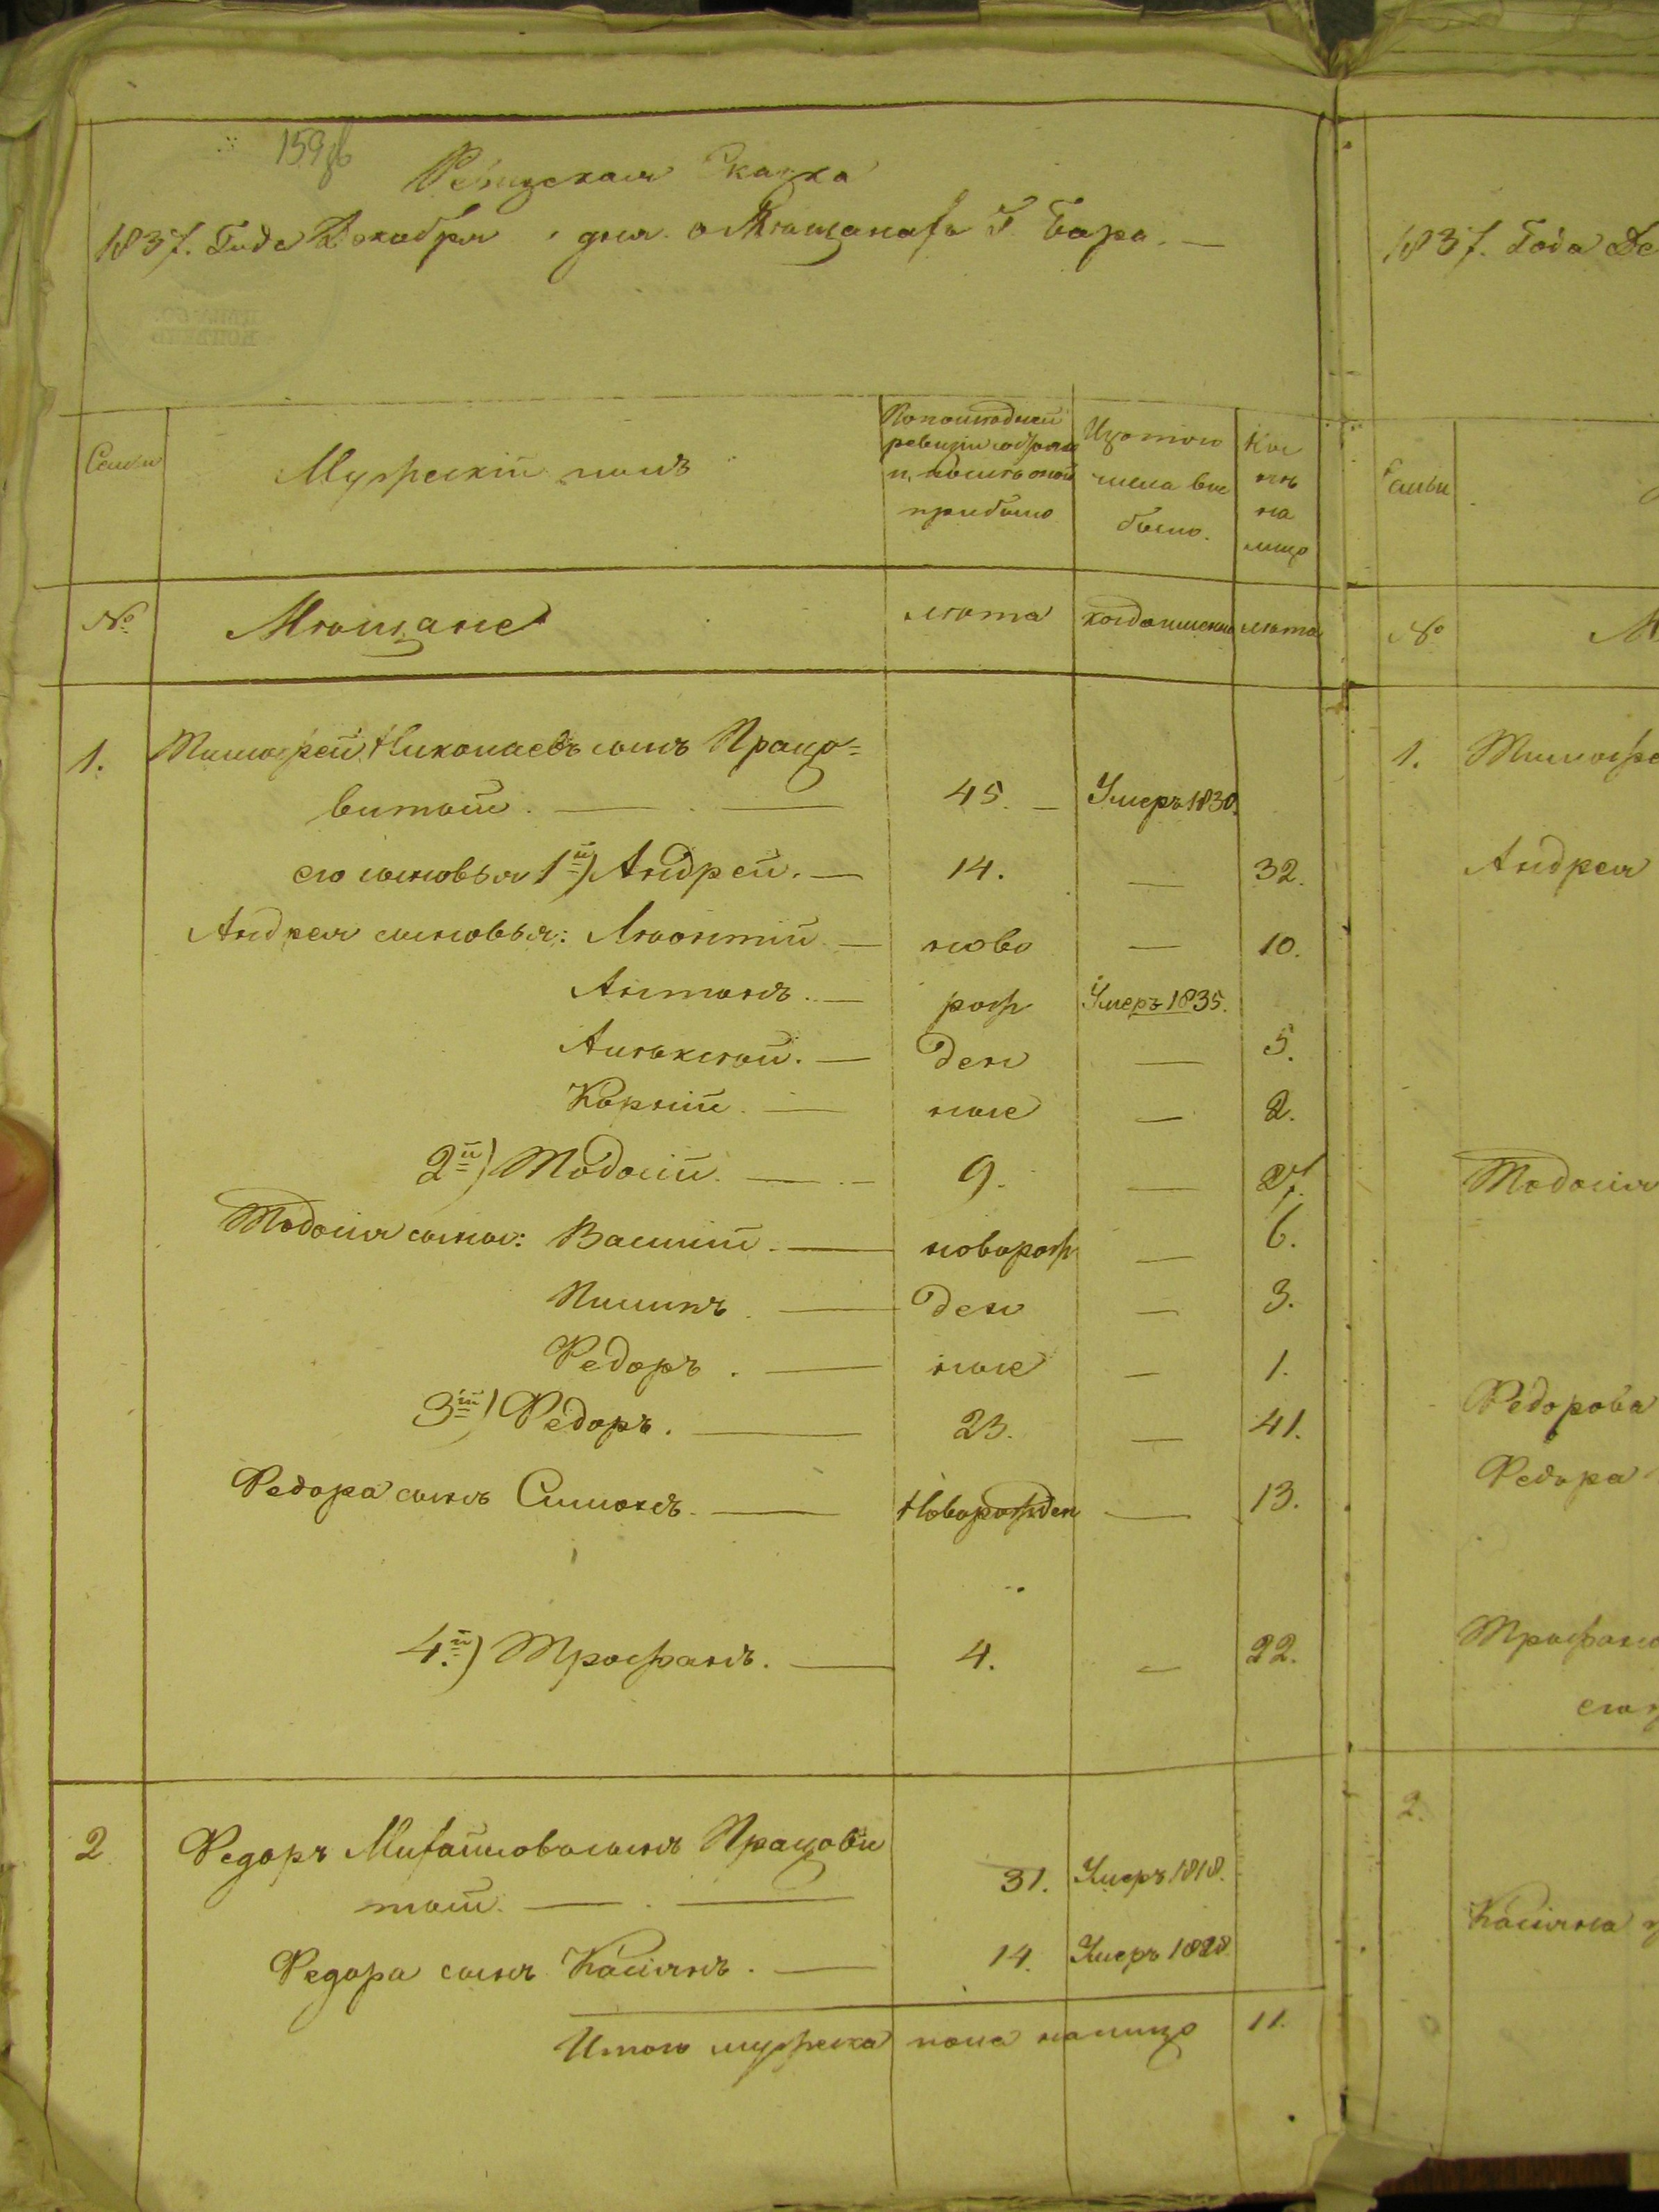 159об
Ревизская Сказка
1837. Года Декабря дня о Мѣщанахъ Г. Бара.
1837. Года Де
Семьи
Мужескій полъ
По последней ревизіи состояло и после оной прибыло
Изъ того числа выбыло.
Ныне на лицо
Семьи
№
Мѣщане
лѣта
когда именно
лѣта
№
М
1. Тимофей Николаевъ сынъ Працо=
витый. 45. Умеръ 1830.
его сыновья 1й) Андрей. 14. 32.
Андрея сыновья: Леонтій ново 10.
Антонъ. рож Умеръ 1835.
Алексѣй. ден 5.
Корнѣй. ные 2.
2й) Тодосій. 9. 27.
Тодосія сыны: Василій. наворож 6.
Пилипъ. ден 3.
Федоръ. ные 1.
3й) Федоръ. 23. 41.
Федора сынъ Симонъ. Новорожден 13.
4й) Трофанъ. 4. 22.
2 Федоръ Михайловъ сынъ Працови
тый. 31. Умеръ 1818.
Федора сынъ Касіянъ. 14. Умеръ 1828
Итого мужеска пола налицо 11.
1. Тимофе
Андрея
Тодосія
Федорова
Федора
Трофана
его
2.
Касіяна